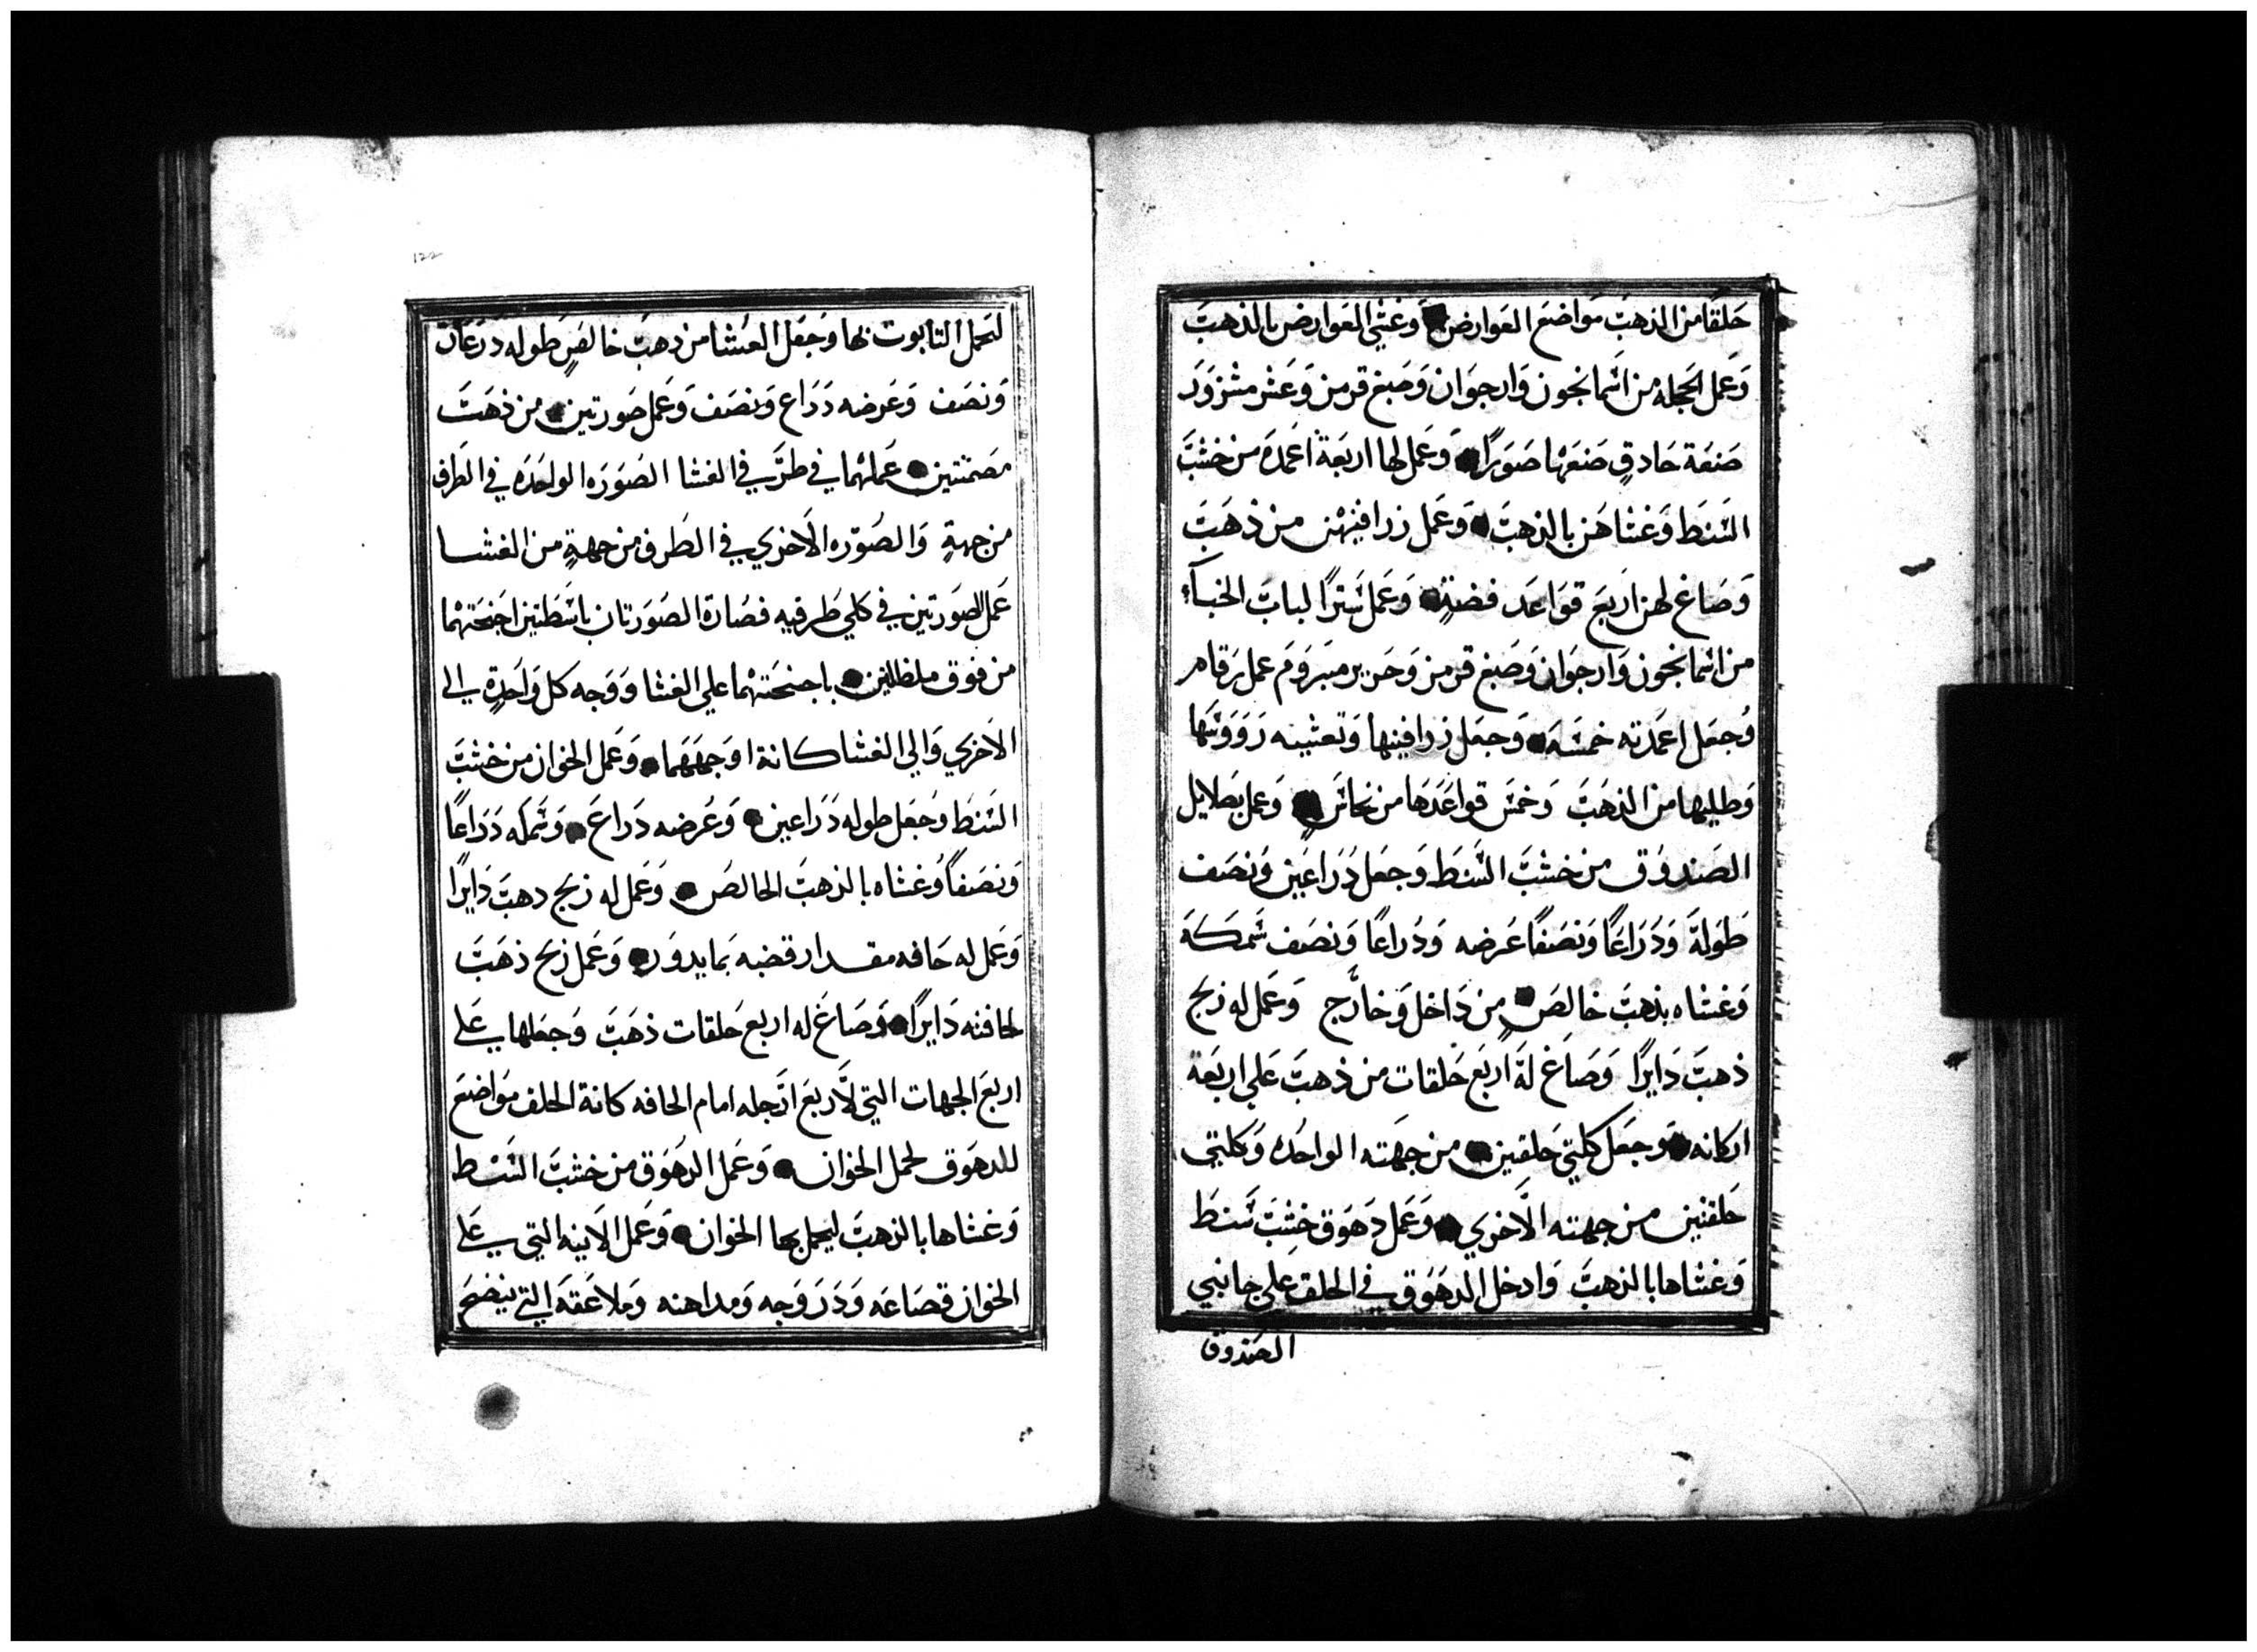 حَلقًا من الذهبَ مَواضعَ العَوارض وَغشي العَوارض بالذهبَ
وَعمل الحَجله من اسْمانجون وَارجوَان وَصَبغ قرمز وَعَشر مشزوَرَ
صَنعَة حَادقٍ صَنعَها صَوَرًا وَعَمل لها اربَعَة اعَمدَه من خشبَ
السَنطَ وَغشاهَن بالذهبَ وَعَمل زرافينهن من ذهَبَ
وَصَاغ لهن اربَعَ قوَاعَد فضةٍ وَعَمل سَترًا لبابَ الخبآء
من اسْمانجون وَارجوَان وَصَبغ قرمز وَحَرير مبَروَم عمل رَقام
وُجعَل اعَمدته خمسَه وَجعَل زرافينها وَتعشيبه رَوَوَسَها
وَطليها من الذهَبَ وَخمسَ قواعَدَها من نحاسَ وَعمل بصَلايل
الصَندوُق من خشبَ السَنطَ وَجعَل ذُرَاعَين وَنصَف
طَولهَ وَذُرَاعًا وَنصَفًا عَرضه وَذُراعًا وَنصَف سَمكَه
وَغشاه بذهبَ خالصَ من دَاخل وَخارَج وَعَمل له زيج
ذهبَ دَايرًا وَصَاغ لهَ اربَع حَلقات من ذهبَ عَلي اربَعَة
اركانه وَجعَل كلتي حَلقتين من جهَته الواحُده وَكلتي
حَلقتين من جهته الاَخري وَعَمل دِهَوَق خشِبَ سَنطَ
وَغشاها بالذهبَ وَادخل الدهَوَق في الحلق علي جانبي
الصَندوق
لتَحمل التابوت بها وَجَعَل الغُشا من ذهبَ خالصٍ طوله درَعَان
وَنصَف وَعَرضه دَرَاع وَنصَف وَعَمل صَورتين من ذهَبَ
مصَمتتين عَملهما في طرَفي الغشا الصُوَرَه الواحَدَه في الطَرف
من جهةٍ وَالصُوَره الاَخري في الطَرف من جهةٍ من الغشا
عَمل الصَورَتين في كلي طَرفيه فصَارة الصُوَرَتان باسَطتين اجَنحَتهْما
من فوَق مظللين باجنحَتهْما علي الغشا وَوَجه كل وَاحَدةٍ الي
الاَخري وَالي الغشا كانة اوَجهَهَما وَعَمل الخوَان من خشبَ
السَنطَ وُجعَل طوله ذَرَاعين وَعُرضه ذَراعَ وَسَمكه ذَرَاعًا
وَنصَفًا وُغشاه بالذهبَ الخالصُ وَعَمل له زيج دهبَ دَايرًا
وَعَمل له حَافه مقدار قبضه بَما يدوَر وَعَمل زيج ذهَبَ
لحافته دَايرًا وَصَاغ له اربع حَلقات ذهَبَ وَجعَلها علي
اربَعَ الجهات التي لاَربَعَ ارَجله امام الحافه كانة الحلف موَاضعَ
للدهَوَق لحمل الخوَان وَعَمل الدهَوَق من خشبَ السَنط
وَغشاها بالذهبَ ليحمل بها الخوَان وَعَمل الاَنيه التي علي
الخوَان قصَاعَه وَدَرَوَجه وَمداهنه وَملاَعَقه التي ينضحَ